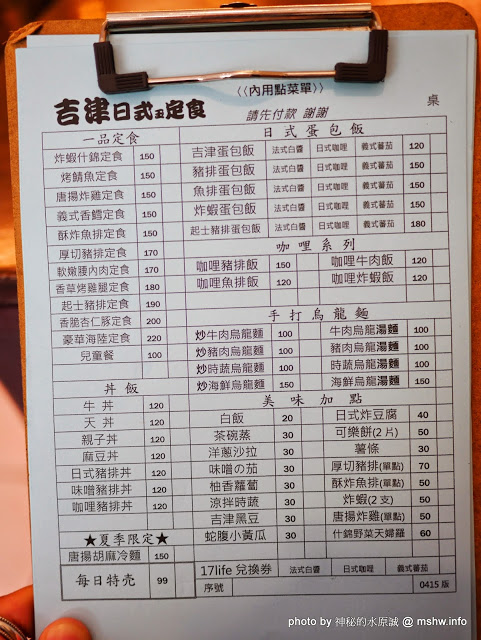 〈〈內用點菜單〉〉
吉津日式定食
請先付款 謝謝
桌
一品定食
炸蝦什錦定食 150
烤鯖魚定食 150
唐揚炸雞定食 150
義式香鱈定食 150
酥炸魚排定食 150
厚切豬排定食 170
軟嫩腰內肉定食 170
香草烤雞腿定食 180
起士豬排定食 190
香脆杏仁豚定食 200
豪華海陸定食 220
兒童餐 100
丼飯
牛丼 120
天丼 120
親子丼 120
麻豆丼 120
日式豬排丼 120
味噌豬排丼 120
咖哩豬排丼 120
★夏季限定★
唐揚胡麻冷麵 150
每日特売 99
日式蛋包飯
吉津蛋包飯 法式白醬 日式咖哩 義式蕃茄 120
豬排蛋包飯 法式白醬 日式咖哩 義式蕃茄 150
魚排蛋包飯 法式白醬 日式咖哩 義式蕃茄 150
炸蝦蛋包飯 法式白醬 日式咖哩 義式蕃茄 150
起士豬排蛋包飯 法式白醬 日式咖哩 義式蕃茄 180
咖哩系列
咖哩豬排飯 150 咖哩牛肉飯 120
咖哩魚排飯 120 咖哩炸蝦飯 120
手打烏龍麵
炒牛肉烏龍麵 100 牛肉烏龍湯麵 100
炒豬肉烏龍麵 100 豬肉烏龍湯麵 100
炒時蔬烏龍麵 100 時蔬烏龍湯麵 100
炒海鮮烏龍麵 150 海鮮烏龍湯麵 150
美味加點
白飯 20 日式炸豆腐 40
茶碗蒸 30 可樂餅(2片) 50
洋蔥沙拉 30 薯條 30
味噌の茄 30 厚切豬排(單點) 70
柚香蘿蔔 30 酥炸魚排(單點) 50
涼拌時蔬 30 炸蝦(2支) 50
吉津黑豆 30 唐揚炸雞(單點) 50
蛇腹小黃瓜 30 什錦野菜天婦羅 60
17life 兌換券 法式白醬 日式咖哩 義式蕃茄
序號 0415版
photo by 神秘的水原誠 @ mshw.info